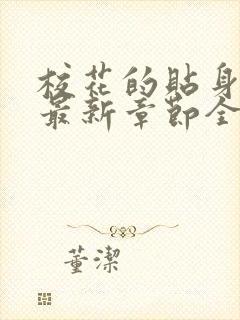 校花的貼身
最新章節全
董潔